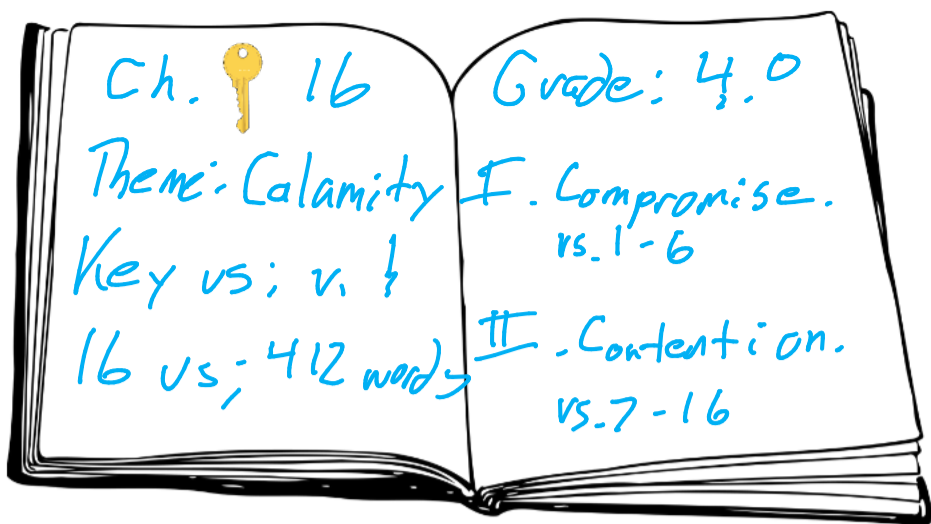 Ch. 16
Theme: Calamity
Key vs; v. 1
16 vs; 412 words
Grade: 4.0
I. Compromise.
vs. 1-6
II. Contention.
vs. 7-16